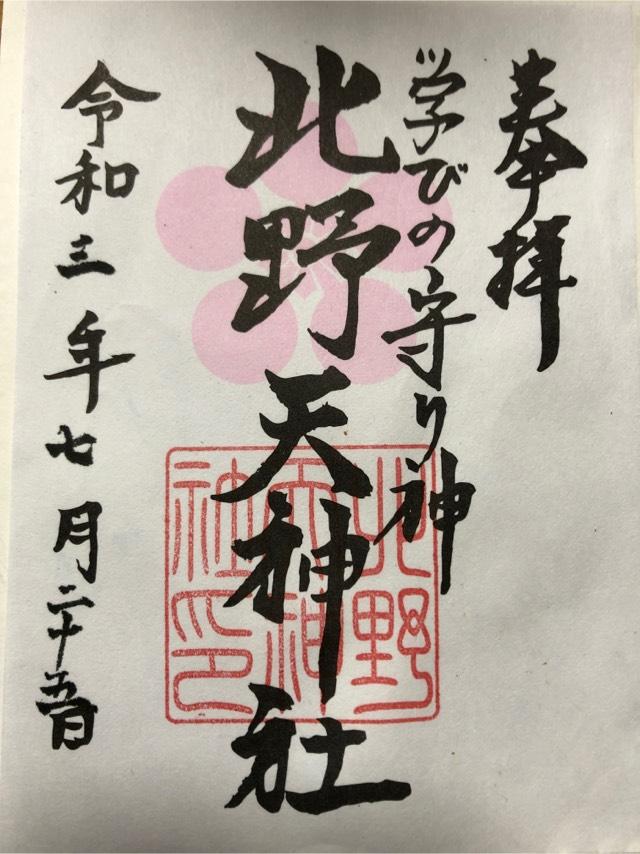 奉拝
学びの守り神
北野天神社
令和三年七月二十五日
北野
天神
社印